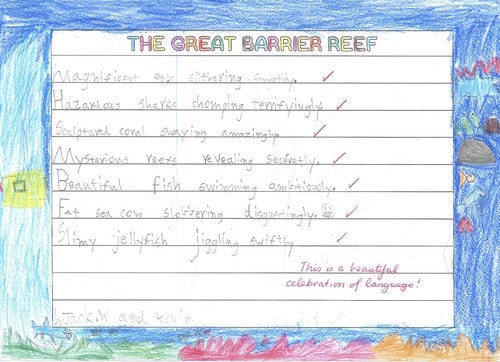 THE GREAT BARRIER REEF
Magnificent eels slithering smoothly.
Hazardous sharks chomping terrifyingly.
Sculptured coral swaying amazingly.
Mysterious reefs revealing secretly.
Beautiful fish swimming ambitiously.
Fat sea cow slobbering disgustingly.
Slimy jellyfish jiggling swiftly
This is a beautiful
celebration of language!
Jackie and Kevin.